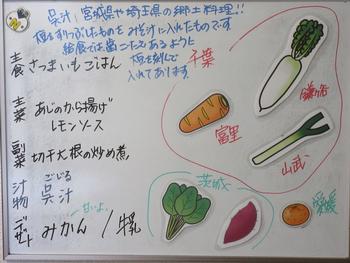 呉汁；宮城県や埼玉県の郷土料理!!
豆をすりつぶしたものをみそ汁に入れたものです
給食では歯ごたえあるように
豆を刻んで
入れてあります
主食 さつまいもごはん
主菜 あじのから揚げ
レモンソース
副菜 切干大根の炒め煮
汁物 ごじる
呉汁
デザート みかん / 牛乳
甘いよ。
千葉
富里
山武
茨城
愛媛